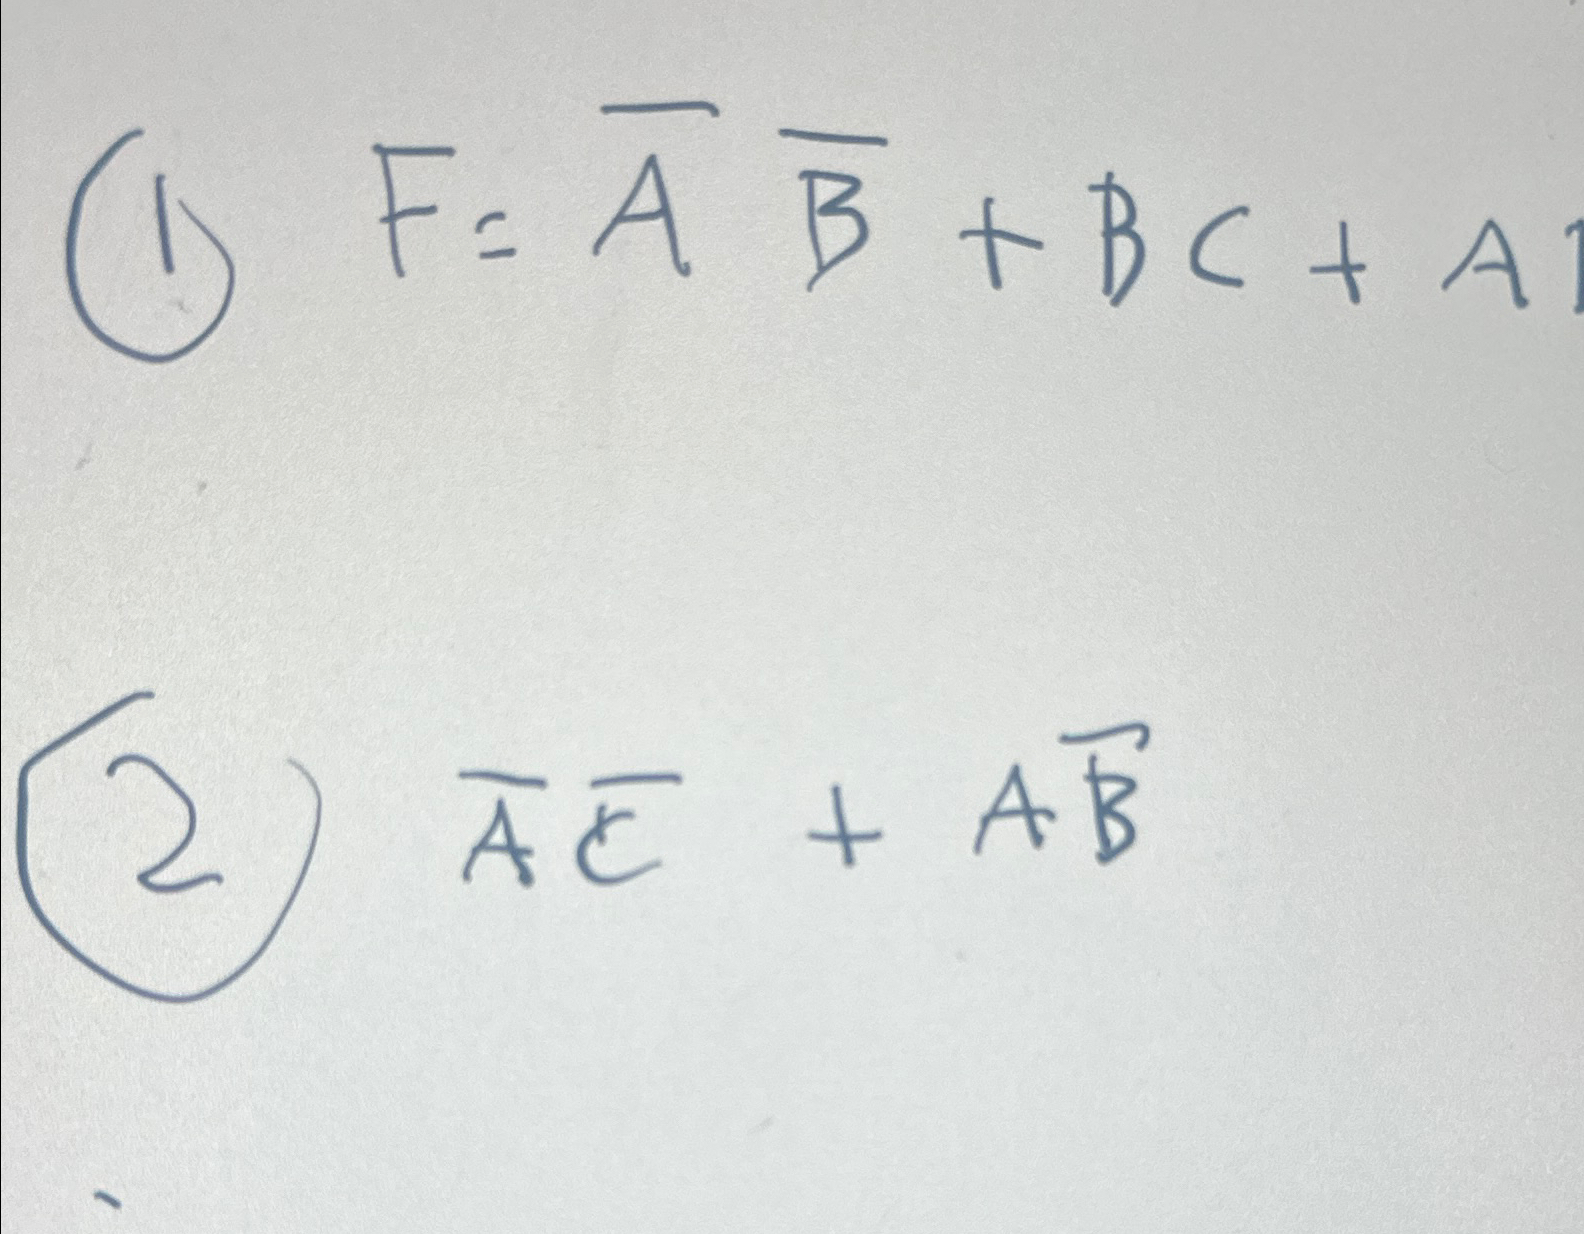 ① F = A̅ B̅ + BC + A
② A̅ C̅ + AB̅